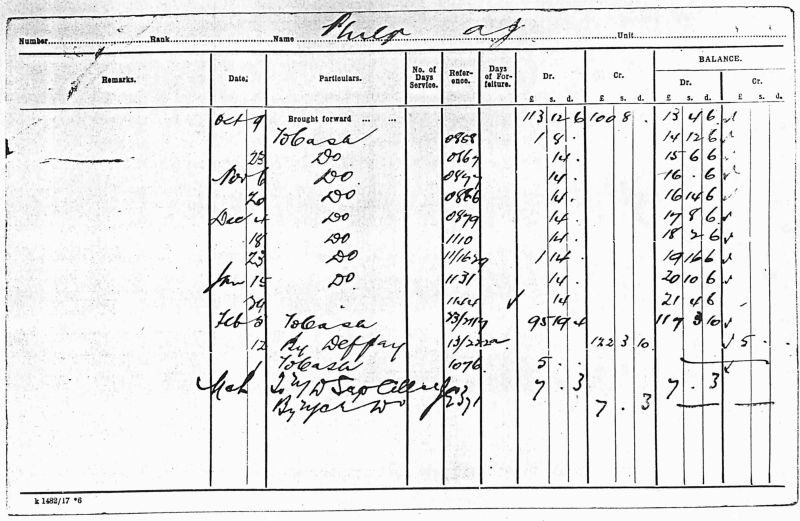 Philp A J
Number Rank Name Unit
BALANCE.
Remarks. Date. Particulars. No. of Days Service. Reference. Days of Forfeiture. Dr. Cr. Dr. Cr.
£ s. d. £ s. d. £ s. d. £ s. d.
Oct 9 Brought forward ... ... 113 12 6 100 8 . 13 4 6
To Cash 0858 1 8 . 14 12 6
23 Do 0867 14 . 15 6 6
Nov 6 Do 14 . 16 . 6
20 Do 0866 14 . 16 14 6
Dec 4 Do 0879 14 . 17 8 6
18 Do 1110 14 . 18 2 6
23 Do 1 14 . 19 16 6
Jan 15 Do 1131 14 . 20 10 6
29 1144 14 21 4 6
Feb 5 To Cash 95 19 4 117 3 10
12 By Def Pay 122 3 10 5 .
To Cash 1076 5 . .
Mch 7 . 3 7 . 3
7 . 3
k 1482/17 *6